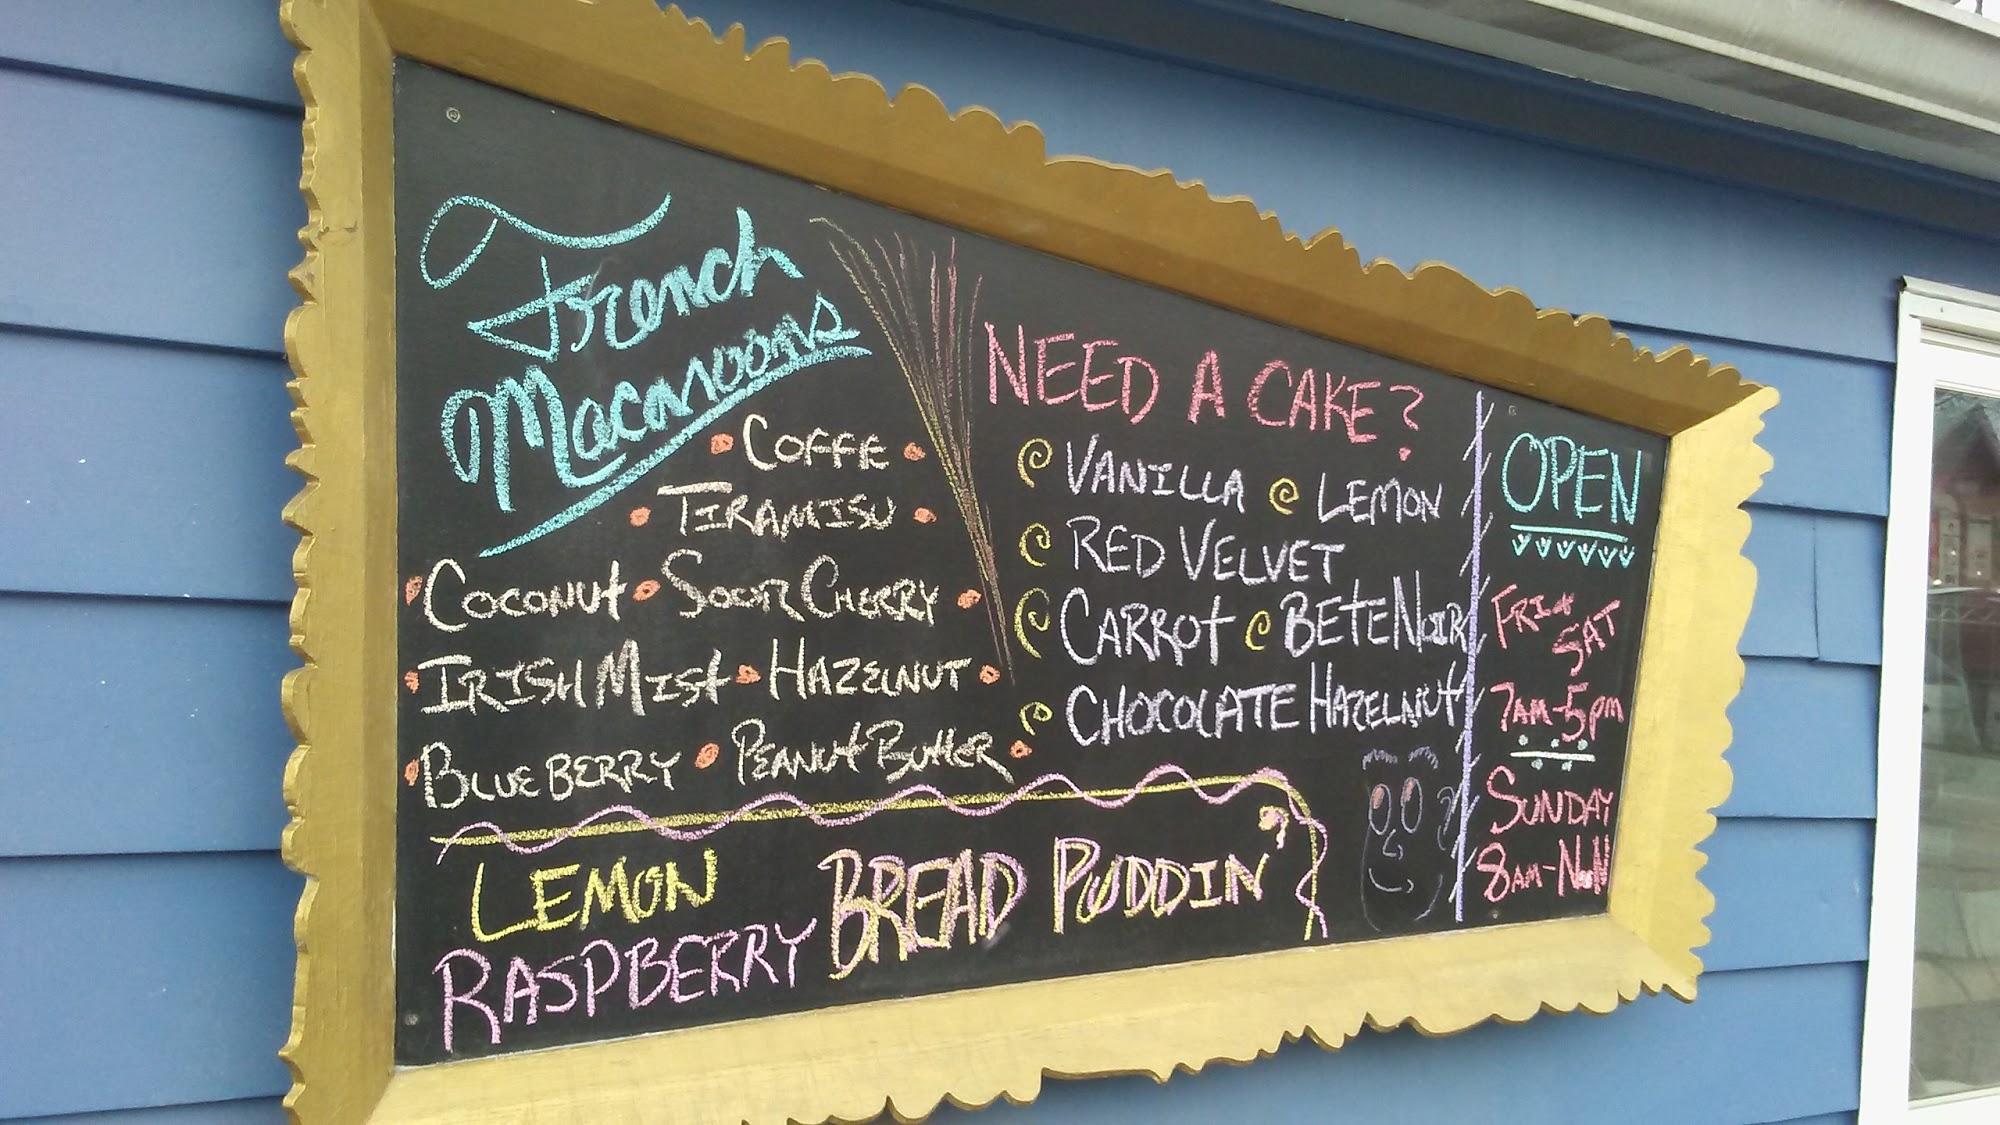 French
Macaroons
COFFE
TIRAMISU
COCONUT SOUR CHERRY
IRISH MIST HAZELNUT
BLUEBERRY PEANUT BUTTER
NEED A CAKE?
VANILLA LEMON
RED VELVET
CARROT BETE NOIR
CHOCOLATE HAZELNUT
LEMON
RASPBERRY BREAD PUDDIN'
OPEN
FRI +
SAT
7AM-5pm
SUNDAY
8AM-NOON